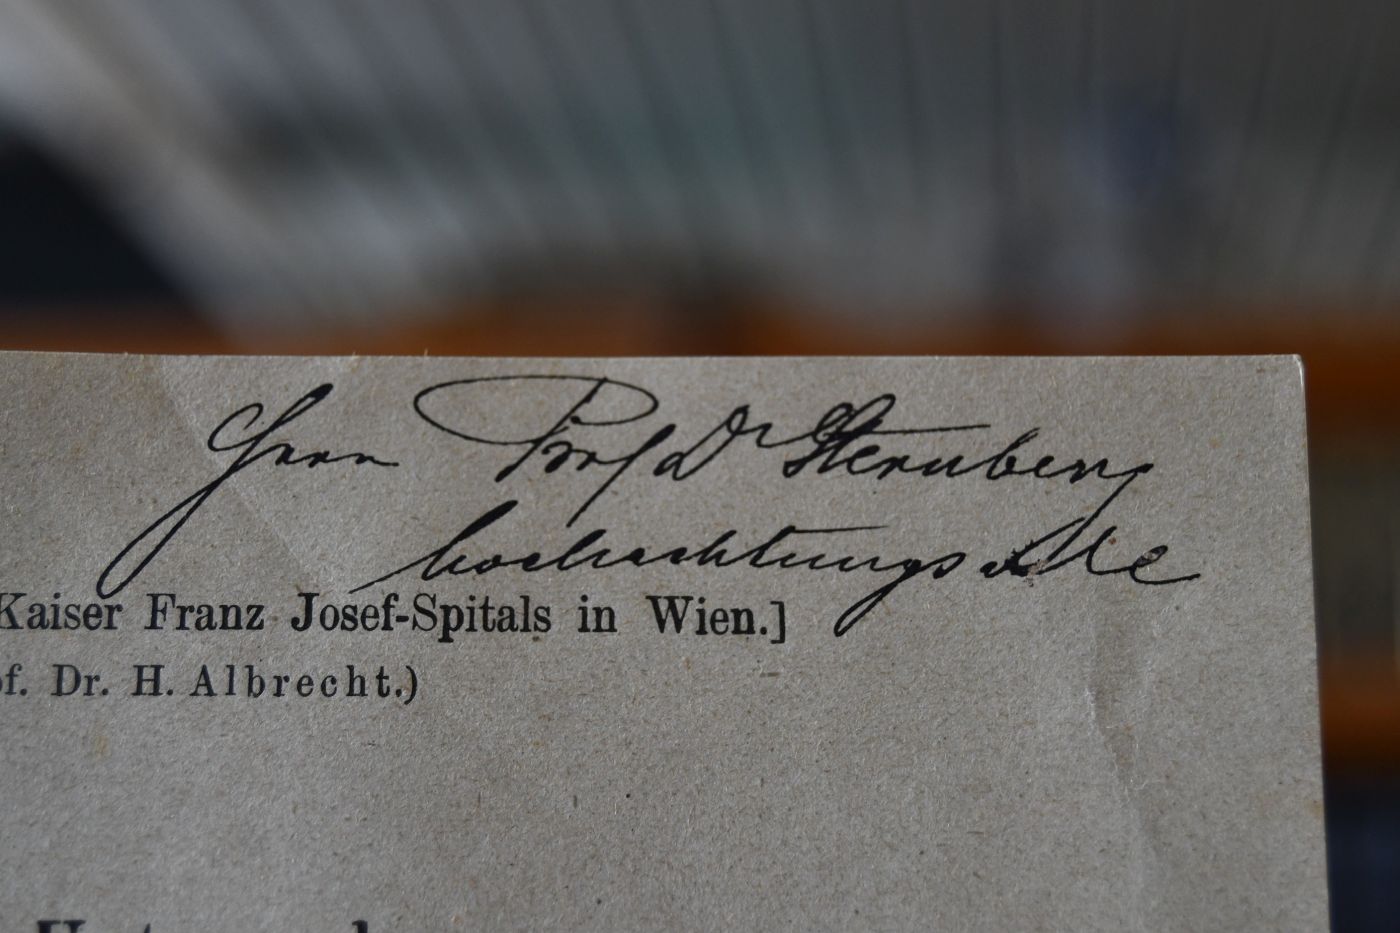 Herrn Prof Dr Sternberg
hochachtungsvoll
Kaiser Franz Josef-Spitals in Wien.]
of. Dr. H. Albrecht.)